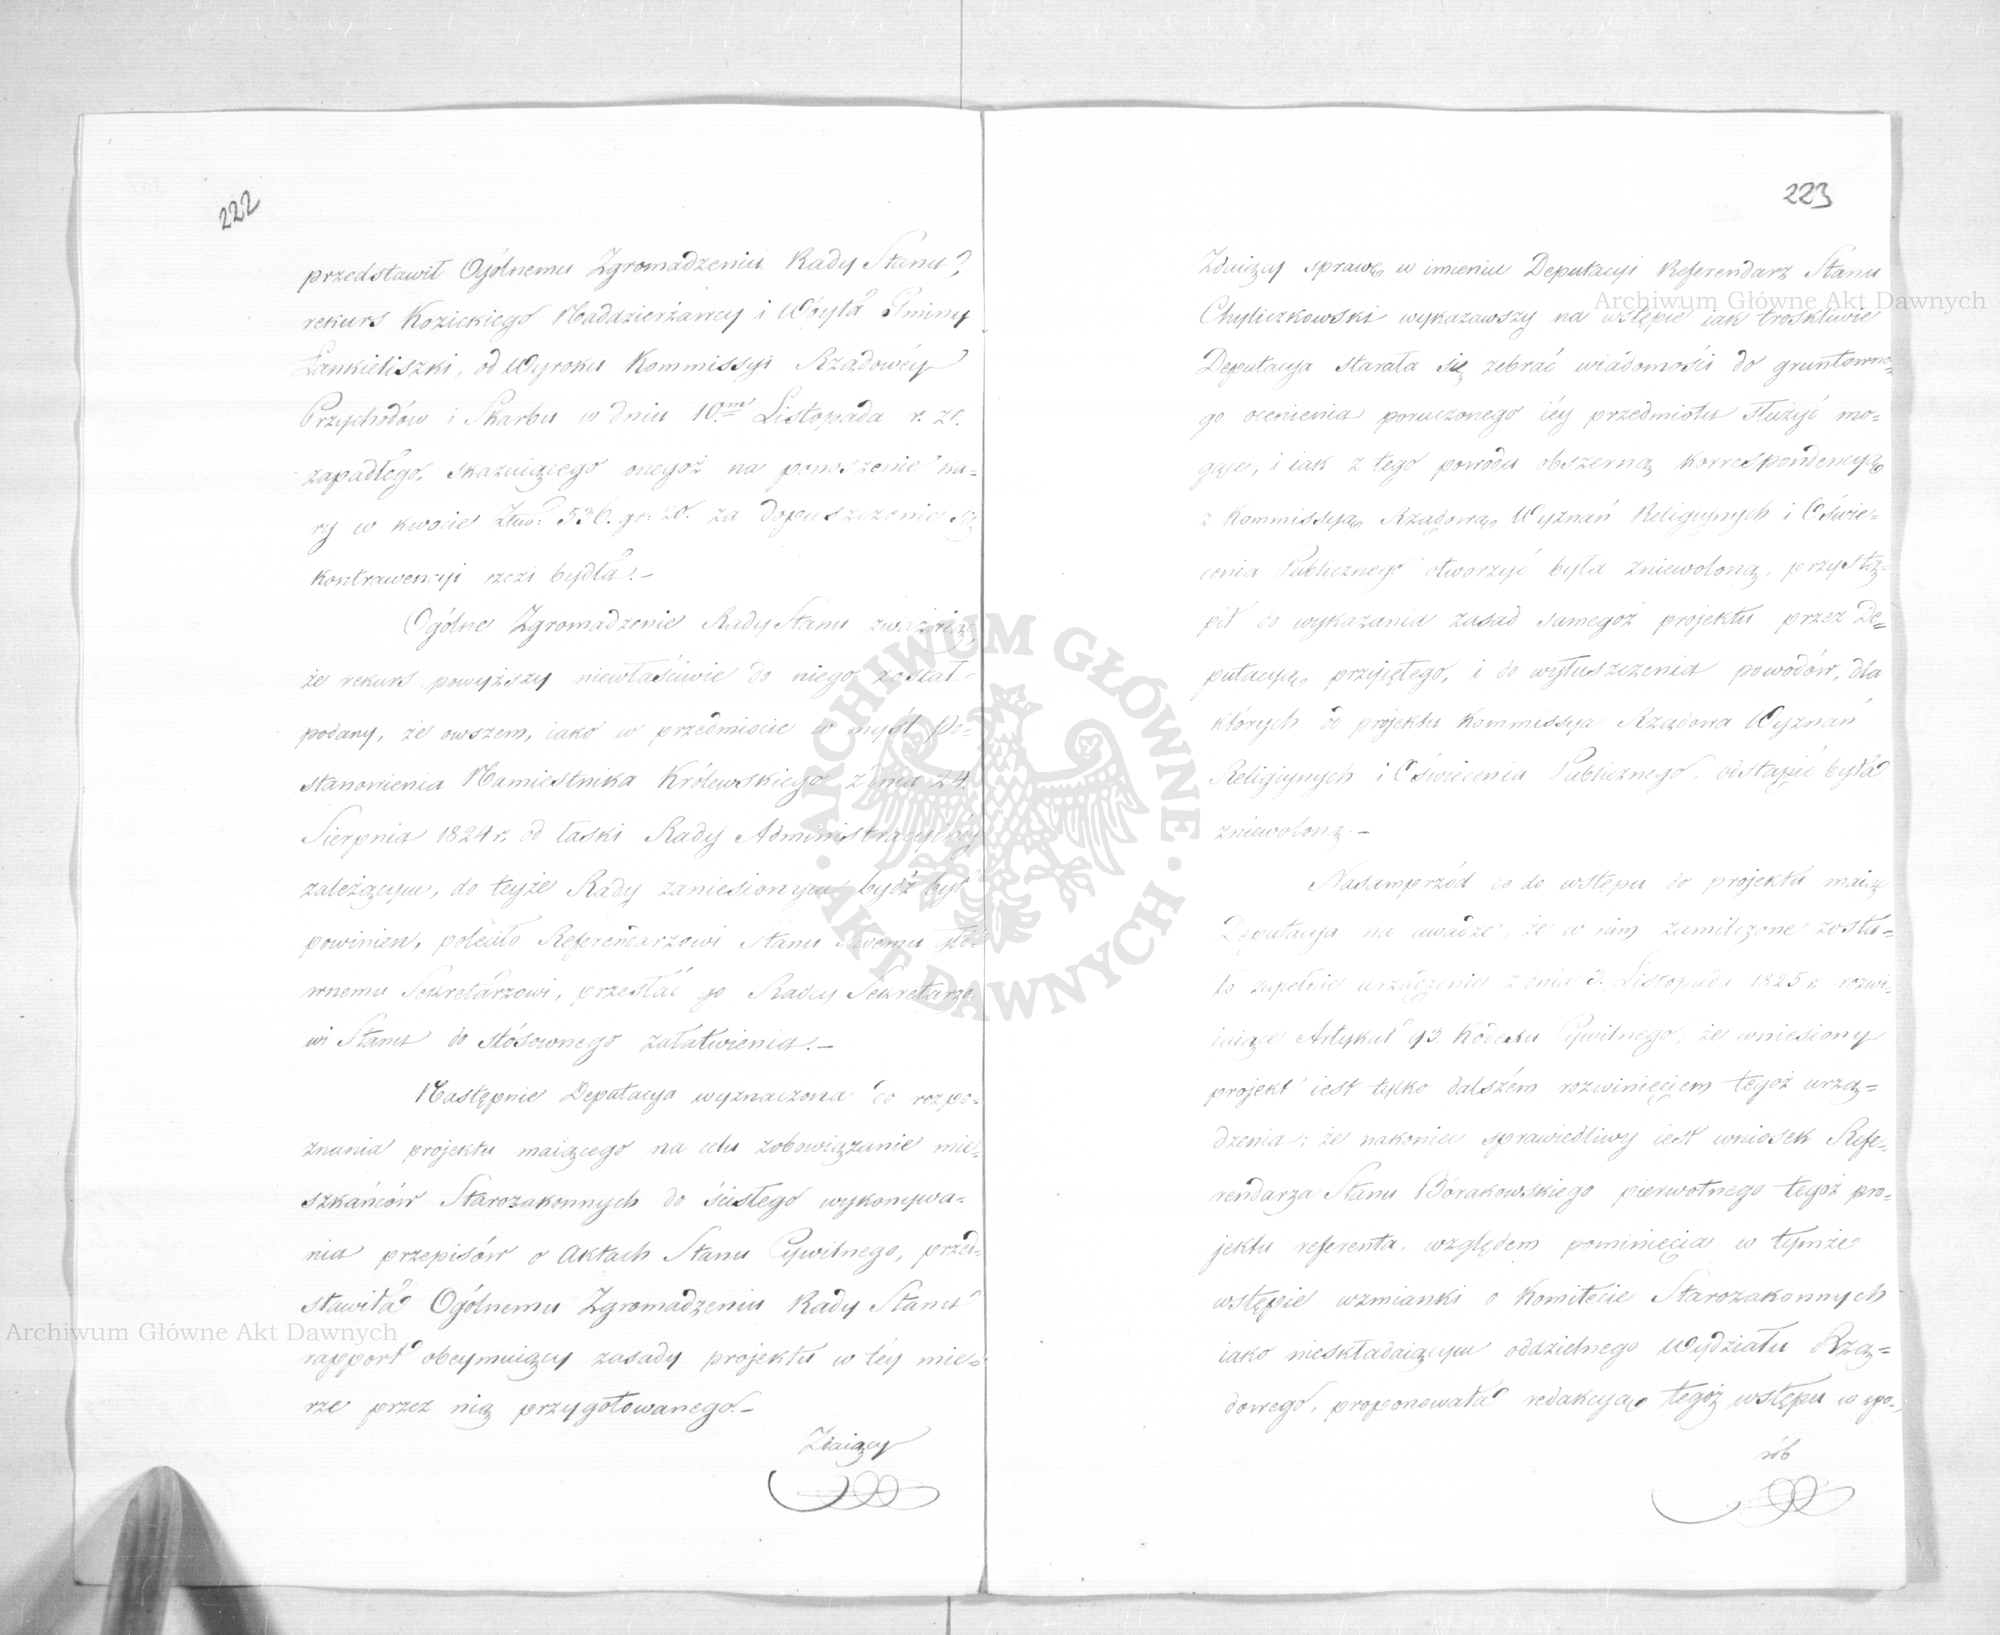 222
przedstawił Ogólnemu Zgromadzeniu Rady Stanu,
rekurs Kozickiego Naddzierżawcy i Wóyta Gminy
Łankieliszki, od Wyroku Kommissyi Rządowéy
Przychodów i Skarbu w dniu 10.m Listopada r. z.
zapadłego, skazuiącego onegoż na ponoszenie ka-
ry w kwocie 536. gr. 20. za dopuszczenie się
kontrawencyi rzezi bydła.-
Ogólne Zgromadzenie Rady Stanu zważając,
że rekurs powyższy niewłaściwie do niego został
podany, że owszem, iako w przedmiocie w myśl Po-
stanowienia Namiestnika Królewskiego z dnia 24.
Sierpnia 1824 r. od łaski Rady Administracyjnéy
zależącym, do teyże Rady zaniesionym bydź był
powinien, poleciło Referendarzowi Stanu Swemu głó-
wnemu Sekretarzowi, przesłać go Radcy Sekretarzo-
wi Stanu do stósownego załatwienia.-
Następnie Deputacya wyznaczona do rozpo-
znania projektu maiącego na celu zobowiązanie mie-
szkańców Starozakonnych do ścisłego wykonywa-
nia przepisów o Aktach Stanu Cywilnego, przed-
stawiła Ogólnemu Zgromadzeniu Rady Stanu
rapport obeymuiący zasady projektu w téy mie-
rze przez nią przygotowanego.-
Zdaiący
223
Zdaiący sprawę w imieniu Deputacyi Referendarz Stanu
Chyliczkowski wykazawszy na wstępie iak troskliwie
Deputacya starała się zebrać wiadomości do gruntowne-
go ocenienia poruczonego iéy przedmiotu służyć mo-
gące, i iak z tego powodu obszerną korrespondencyą
z Kommissyą Rządową Wyznań Religijnych i Oświe-
cenia Publicznego otworzyć była zniewoloną, przystą-
pił do wykazania zasad samegoż projektu przez De-
putacyą przyiętego, i do wyłuszczenia powodów, dla
których od projektu Kommissya Rządowa Wyznań
Religijnych i Oświecenia Publicznego, odstąpić była
zniewoloną.-
Nasamprzód co do wstępu do projektu maiąc
Deputacya na uwadze, że w nim zamilczone zosta-
ło zupełnie urządzenie z dnia 3. Listopada 1825 r. rozwi-
iaiące Artykuł 93. Kodexu Cywilnego, że wniesiony
projekt iest tylko dalszém rozwinięciem tegoż urzą-
dzenia; że nakoniec sprawiedliwy iest wniosek Refe-
rendarza Stanu Bórakowskiego pierwotnego tegoż pro-
jektu referenta, względem pominięcia w tymże
wstępie wzmianki o Komitecie Starozakonnych
iako nieskładaiącym oddzielnego Wydziału Rzą-
dowego, proponowała redakcyą tegoż wstępu w spo-
sób
Archiwum Główne Akt Dawnych
Archiwum Główne Akt Dawnych
ARCHIWUM GŁÓWNE AKT DAWNYCH